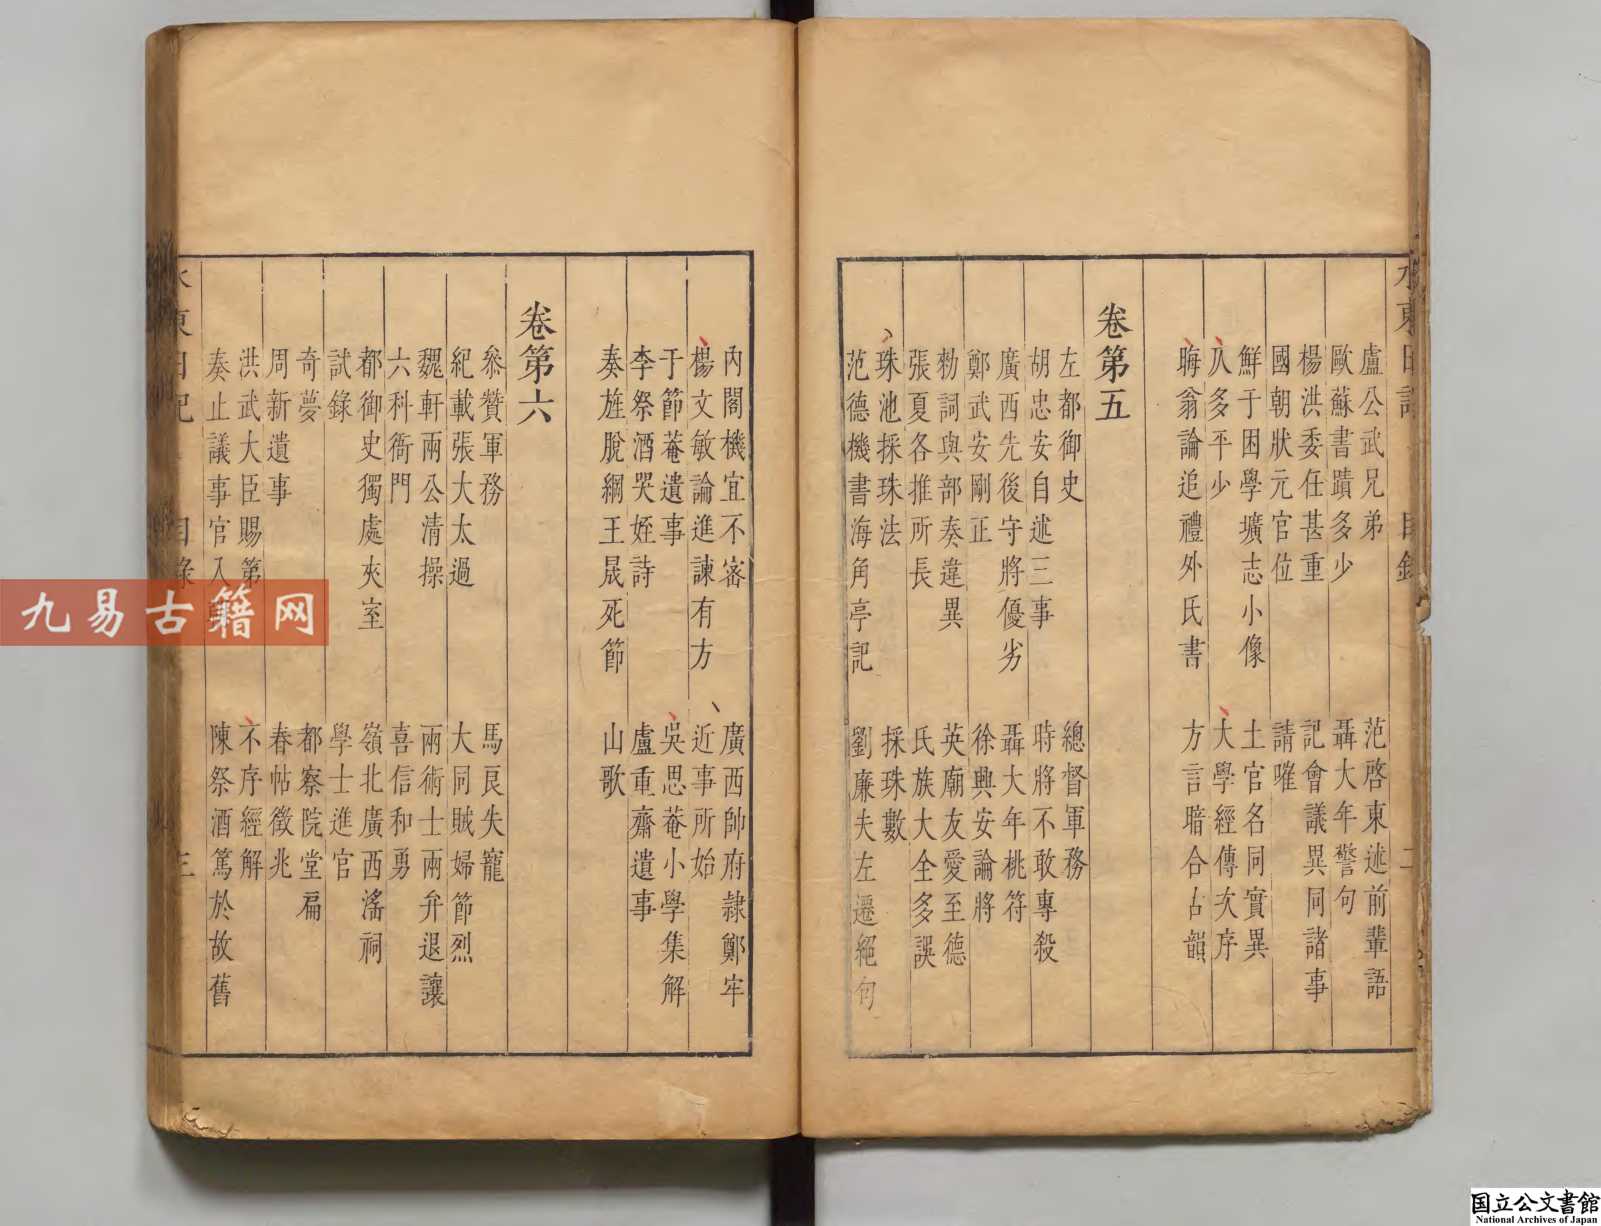 水東日記 目錄 二
盧公武兄弟 范啓東述前輩語
歐蘇書蹟多少 聶大年警句
楊洪委任甚重 記會議異同諸事
國朝狀元官位 請嚁
鮮于困學壙志小像 土官名同實異
仄多平少 大學經傳次序
晦翁論追禮外氏書 方言暗合古韻
卷第五
左都御史 總督軍務
胡忠安自述三事 時將不敢專殺
廣西先後守將優劣 聶大年桃符
鄭武安剛正 徐興安論將
勑詞與部奏違異 英廟友愛至德
張夏各推所長 氏族大全多誤
珠池採珠法 採珠數
范德機書海角亭記 劉廉夫左遷絕句
內閣機宜不審 廣西帥府隸鄭牢
楊文敏論進諫有方 近事所始
于節菴遺事 吳思菴小學集解
李祭酒哭姪詩 盧重齋遺事
奏旌脫綱王晟死節 山歌
卷第六
叅贊軍務 馬良失寵
紀載張大太過 大同賊婦節烈
魏軒兩公清操 兩術士兩弁退讓
六科衙門 喜信和勇
都御史獨處夾室 嶺北廣西滛祠
試錄 學士進官
奇夢 都察院堂扁
周新遺事 春帖徵兆
洪武大臣賜第 不序經解
奏止議事官入 陳祭酒篤於故舊
水東日記 目錄 三
九易古籍网
国立公文書館
National Archives of Japan